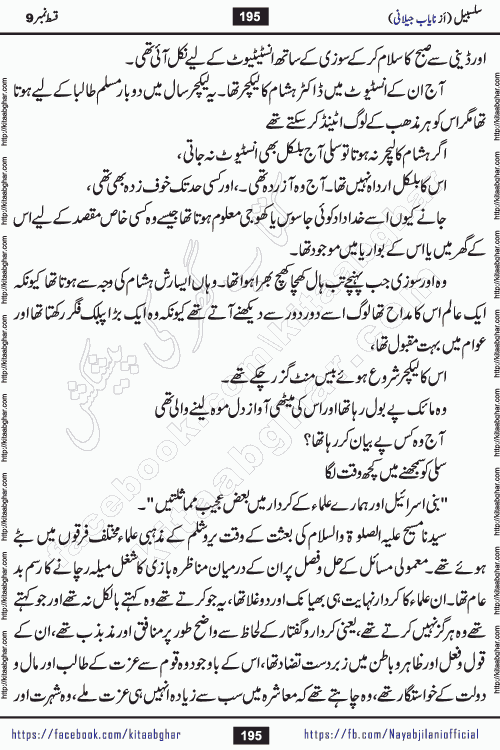 سلسبیل (از نایاب جیلانی) 195 قسط نمبر 9
اور ڈینی سے صبح کا سلام کر کے سوزی کے ساتھ انسٹیٹیوٹ کے لیے نکل آئی تھی۔
آج ان کے انسٹیوٹ میں ڈاکٹر ہشام کا لیکچر تھا۔ یہ لیکچر سال میں دو بار مسلم طالبا کے لیے ہوتا
تھا مگر اس کو ہر مذہب کے لوگ اٹینڈ کر سکتے تھے
اگر ہشام کا لیکچر نہ ہوتا تو سلی آج بلکل بھی انسٹیوٹ نہ جاتی،
اس کا بلکل ارداہ نہیں تھا۔ آج وہ آزردہ تھی۔، اور کسی حد تک خوف زدہ بھی تھی،
جانے کیوں اسے خداداد کوئی جاسوس یا کھوجی معلوم ہوتا تھا جیسے وہ کسی خاص مقصد کے لیے اس
کے گھر میں یا اس کے بواریا میں موجود تھا۔
وہ اور سوزی جب پہنچے تب ہال کھچا کھچ بھرا ہوا تھا۔ وہاں ایسا رش ہشام کی وجہ سے ہوتا تھا کیونکہ
ایک عالم اس کا مداح تھا لوگ اسے دور دور سے دیکھنے آتے تھے کیونکہ وہ ایک بڑا پبلک فگر رکھتا تھا اور
عوام میں بہت مقبول تھا،
اس کا لیکچر شروع ہوئے بیس منٹ گزر چکے تھے۔
وہ مائک پے بول رہا تھا اور اس کی میٹھی آواز دل موہ لینے والی تھی
آج وہ کس پے بیان کر رہا تھا؟
سلی کو سمجھنے میں کچھ وقت لگا
"بنی اسرائیل اور ہمارے علماء کے کردار میں بعض عجیب مماثلتیں"۔
سیدنا مسیح علیہ الصلوۃ والسلام کی بعثت کے وقت یروشلم کے مذہبی علماء مختلف فرقوں میں بٹے
ہوئے تھے۔ معمولی مسائل کے حل و فصل پر ان کے درمیان مناظرہ بازی کا شغل میلہ رچانے کا رسم بد
عام تھا۔ ان علماء کا کردار نہایت ہی بھیانک اور دوغلا تھا، یہ جو کرتے تھے وہ کہتے بالکل نہ تھے اور جو کہتے
تھے وہ ہرگز نہیں کرتے تھے، یعنی کردار و گفتار کے لحاظ سے واضح طور پر منافق اور مذبذب تھے، ان کے
قول و فعل اور ظاہر و باطن میں زبردست تضاد تھا، اس کے باوجود وہ قوم سے عزت کے طالب اور مال و
دولت کے خواستگار تھے، وہ چاہتے تھے کہ معاشرہ میں سب سے زیادہ انہیں ہی عزت ملے، وہ شہرت اور
https://facebook.com/kitaabghar 195 https://fb.com/Nayabjilaniofficial
http://kitaabghar.com
کتاب گھر کی پیشکش
facebook.com/kitaabghar
kitaabghar.com